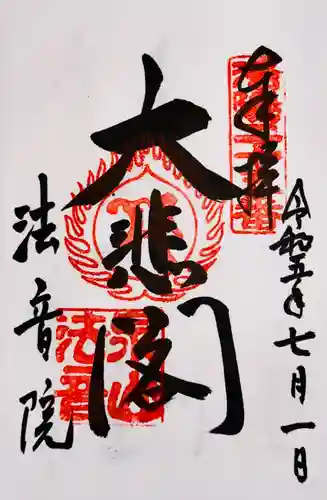 奉拝
令和五年七月一日
大悲閣
法音院